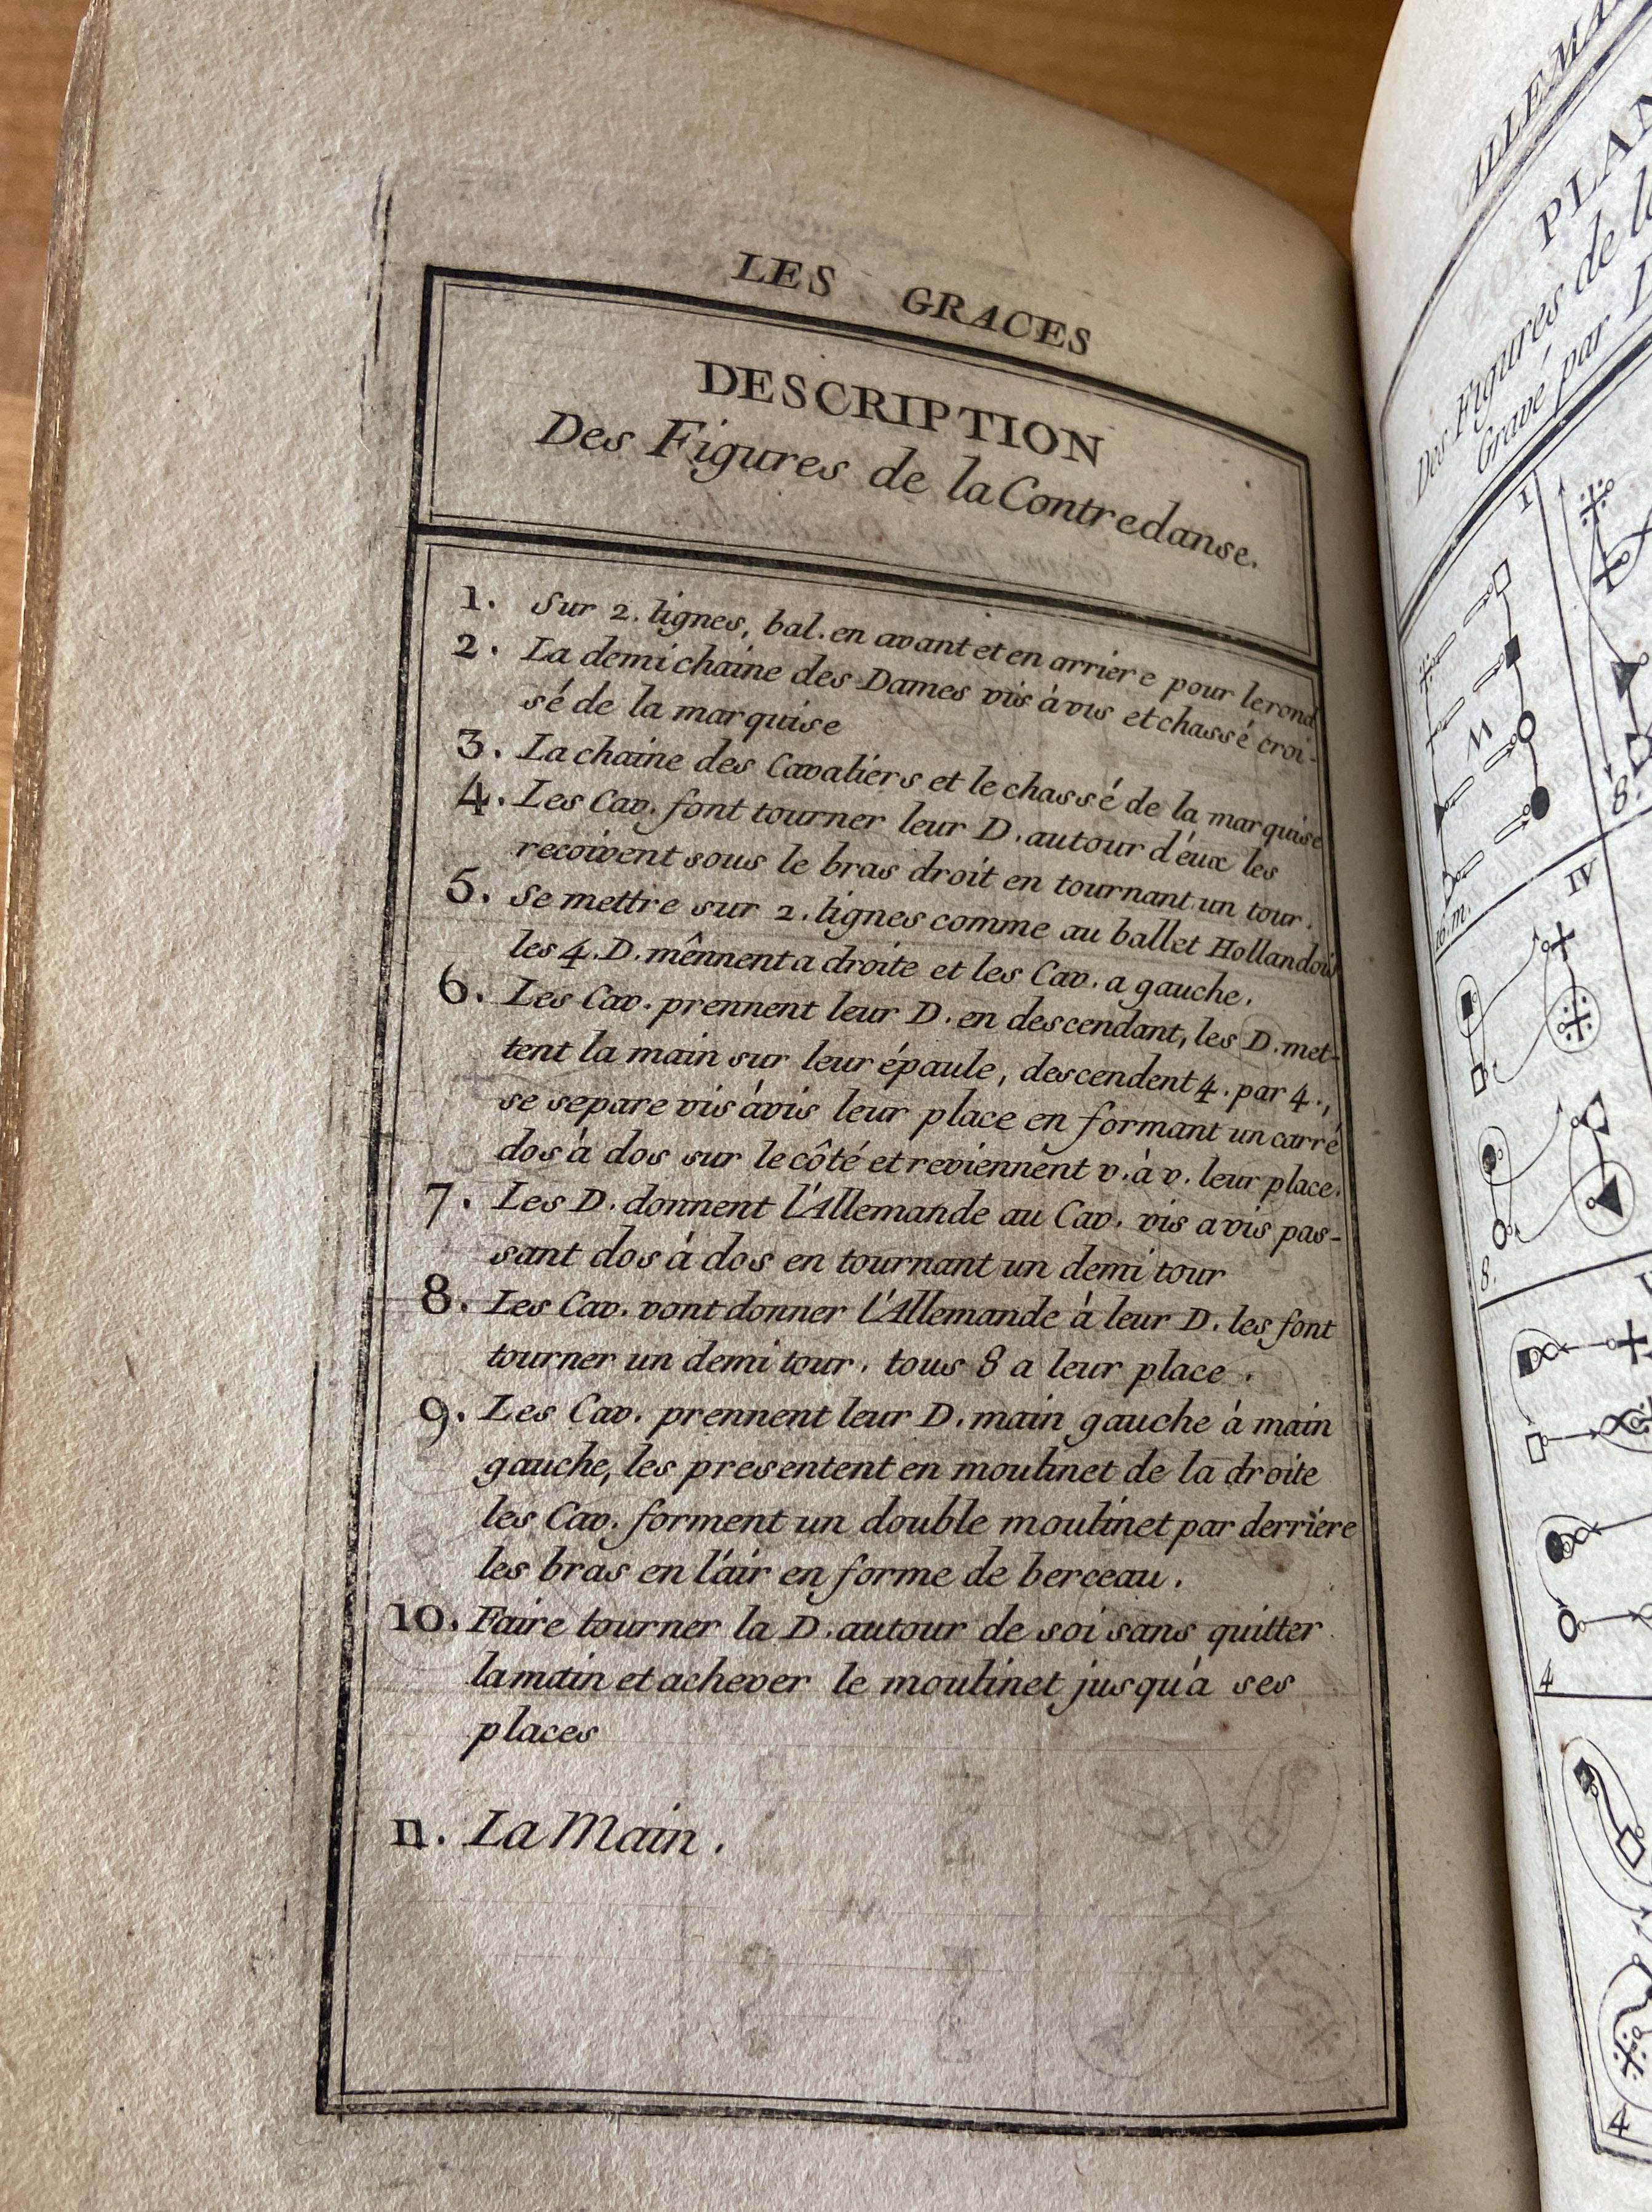 LES GRACES
DESCRIPTION
Des Figures de la Contredanse.
1. Sur 2. lignes, bal. en avant et en arriere pour le rond
2. La demi chaine des Dames vis à vis et chassé croi-
sé de la marquise
3. La chaine des Cavaliers et le chassé de la marquise
4. Les Cav. font tourner leur D. autour d'eux les
recoivent sous le bras droit en tournant un tour.
5. Se mettre sur 2. lignes comme au ballet Hollandois
les 4. D. mênnent a droite et les Cav. a gauche.
6. Les Cav. prennent leur D. en descendant, les D. met-
tent la main sur leur épaule, descendent 4. par 4.,
se separe vis àvis leur place en formant un carré
dos à dos sur le côté et reviennent v. à v. leur place.
7. Les D. donnent l'Allemande au Cav. vis a vis pas-
sant dos à dos en tournant un demi tour
8. Les Cav. vont donner l'Allemande à leur D. les font
tourner un demi tour. tous 8 a leur place.
9. Les Cav. prennent leur D. main gauche à main
gauche, les presentent en moulinet de la droite
les Cav. forment un double moulinet par derriere
les bras en l'air en forme de berceau.
10. Faire tourner la D. autour de soi sans quitter
la main et achever le moulinet jusqu'a ses
places
11. La Main.
PLAN
Des Figures de la
Gravé par
I
W
16. m.
8.
IV
8.
4
4